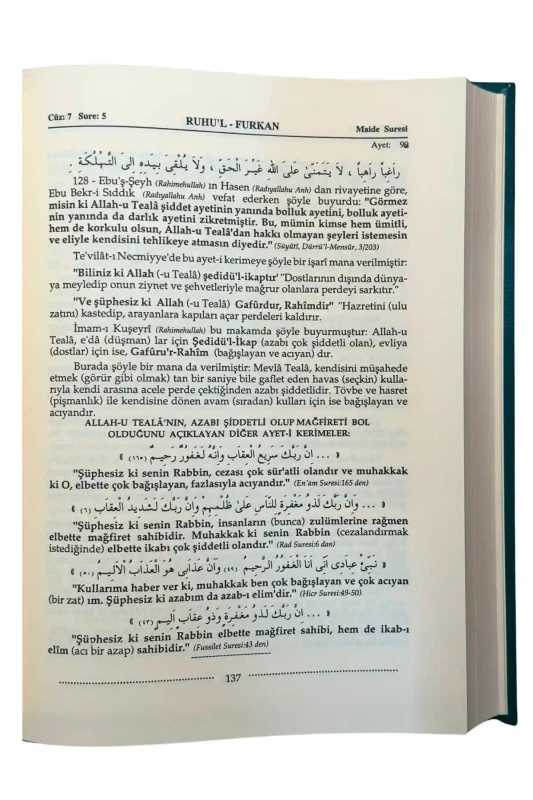 Cüz: 7 Sure: 5
RUHU'L - FURKAN
Maide Suresi
Ayet: 98
رَاغِباً رَاهِباً ، لَا يَتَمَنَّىٰ عَلَى اللّٰهِ غَيْرَ الْحَقِّ ، وَلَا يُلْقِىَ بِيَدِهِ اِلَى التَّهْلُكَةِ .
128 - Ebu'ş-Şeyh (Rahimehullah) ın Hasen (Radıyallahu Anh) dan rivayetine göre,
Ebu Bekr-i Sıddık (Radıyallahu Anh) vefat ederken şöyle buyurdu: "Görmez
misin ki Allah-u Tealâ şiddet ayetinin yanında bolluk ayetini, bolluk ayeti-
nin yanında da darlık ayetini zikretmiştir. Bu, mümin kimse hem ümitli,
hem de korkulu olsun, Allah-u Tealâ'dan hakkı olmayan şeyleri istemesin
ve eliyle kendisini tehlikeye atmasın diyedir." (Süyûtî, Dürrü'l-Mensûr, 3/203)
Te'vilât-ı Necmiyye'de bu ayet-i kerimeye şöyle bir işarî mana verilmiştir:
"Biliniz ki Allah (-u Teala) şedidü'l-ikaptır" "Dostlarının dışında dünya-
ya meyledip onun ziynet ve şehvetleriyle mağrur olanlara perdeyi sarkıtır."
"Ve şüphesiz ki Allah (-u Teala) Gafûrdur, Rahîmdir" "Hazretini (ulu
zatını) kastedip, arayanlara kapıları açar perdeleri kaldırır.
İmam-ı Kuşeyrî (Rahimehullah) bu makamda şöyle buyurmuştur: Allah-u
Tealâ, e'dâ (düşman) lar için Şedidü'l-İkap (azabı çok şiddetli olan), evliya
(dostlar) için ise, Gafûru'r-Rahîm (bağışlayan ve acıyan) dır.
Burada şöyle bir mana da verilmiştir: Mevlâ Tealâ, kendisini müşahede
etmek (görür gibi olmak) tan bir saniye bile gaflet eden havas (seçkin) kulla-
rıyla kendi arasına acele perde çektiğinden azabı şiddetlidir. Tövbe ve hasret
(pişmanlık) ile kendisine dönen avam (sıradan) kulları için ise bağışlayan ve
acıyandır.
ALLAH-U TEALÂ'NIN, AZABI ŞİDDETLİ OLUP MAĞFİRETİ BOL
OLDUĞUNU AÇIKLAYAN DİĞER AYET-İ KERİMELER:
﴿ ... اِنَّ رَبَّكَ سَرِيعُ الْعِقَابِ وَاِنَّهُ لَغَفُورٌ رَحِيمٌ (١٦٥) ﴾
"Şüphesiz ki senin Rabbin, cezası çok sür'atli olandır ve muhakkak
ki O, elbette çok bağışlayan, fazlasıyla acıyandır." (En'am Suresi:165 den)
﴿ ... وَاِنَّ رَبَّكَ لَذُو مَغْفِرَةٍ لِلنَّاسِ عَلَىٰ ظُلْمِهِمْ وَاِنَّ رَبَّكَ لَشَدِيدُ الْعِقَابِ (٦) ﴾
"Şüphesiz ki senin Rabbin, insanların (bunca) zulümlerine rağmen
elbette mağfiret sahibidir. Muhakkak ki senin Rabbin (cezalandırmak
istediğinde) elbette ikabı çok şiddetli olandır." (Rad Suresi:6 dan)
﴿ نَبِّئْ عِبَادِى اَنِّى اَنَا الْغَفُورُ الرَّحِيمُ (٤٩) وَاَنَّ عَذَابِى هُوَ الْعَذَابُ الْاَلِيمُ (٥٠) ﴾
"Kullarıma haber ver ki, muhakkak ben çok bağışlayan ve çok acıyan
(bir zat) ım. Şüphesiz ki azabım da azab-ı elim'dir." (Hicr Suresi:49-50)
﴿ ... اِنَّ رَبَّكَ لَذُو مَغْفِرَةٍ وَذُو عِقَابٍ اَلِيمٍ (٤٣) ﴾
"Şüphesiz ki senin Rabbin elbette mağfiret sahibi, hem de ikab-ı
elîm (acı bir azap) sahibidir." (Fussilet Suresi:43 den)
137